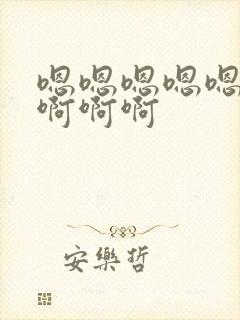 嗯嗯嗯嗯嗯
啊啊啊
安樂哲